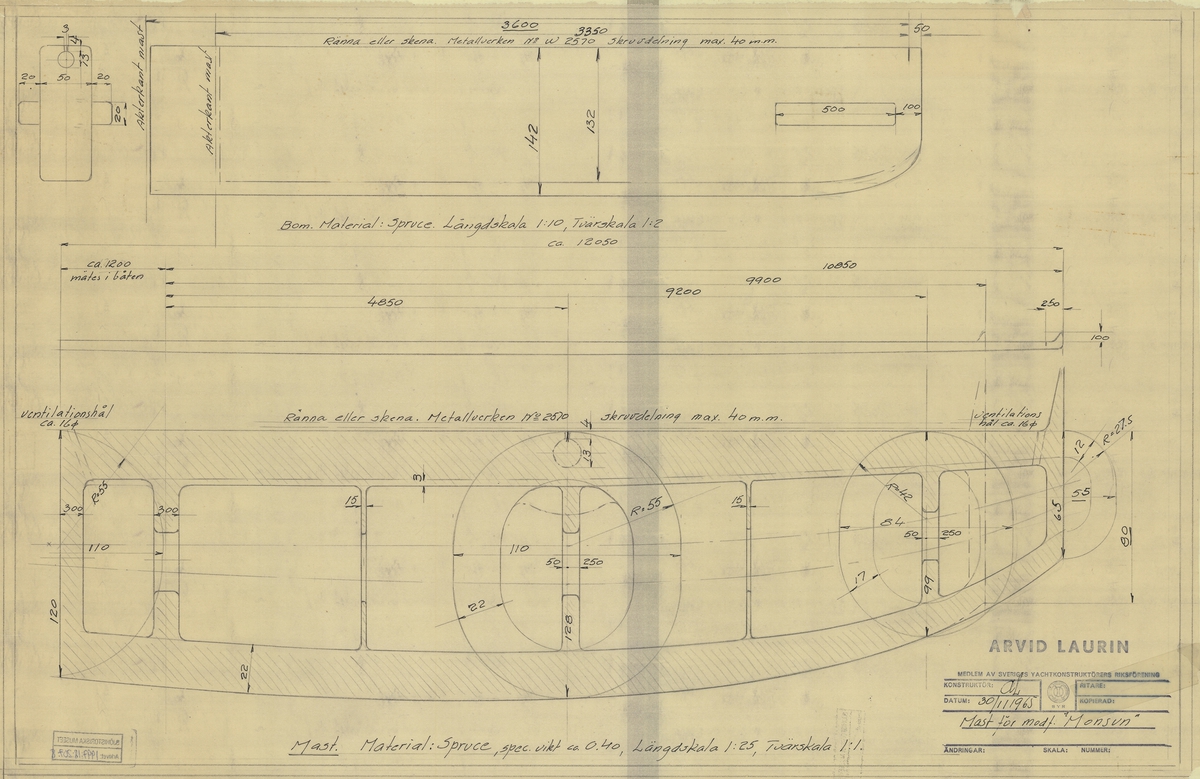 3600
50
3350
Ränna eller skena. Metallverken No W 2570 skruvdelning max. 40 m.m.
3
4
13
20 50 20
20
Akterkant mast
Akterkant mast
142
132
500
100
Bom. Material: Spruce. Längdskala 1:10, Tvärskala 1:2
ca. 12050
ca. 1200
mätes i båten
10850
9900
9200
4850
250
100
ventilationshål
ca. 16ϕ
Ränna eller skena. Metallverken No 2570 skruvdelning max. 40 m.m.
ventilations
hål ca. 16ϕ
4
13
3
12
R=27.5
R=55
300
300
15
R=55
15
R=42
55
65
84
110
110
50 250
50 250
80
22
17
99
120
128
22
ARVID LAURIN
MEDLEM AV SVERIGES YACHTKONSTRUKTÖRERS RIKSFÖRENING
KONSTRUKTÖR: AL
RITARE:
DATUM: 30/11 1965
KOPIERAD:
Mast för modf. "Monsun"
ÄNDRINGAR: SKALA: NUMMER:
Mast. Material: Spruce, spec. vikt ca 0.40, Längdskala 1:25, Tvärskala 1:1